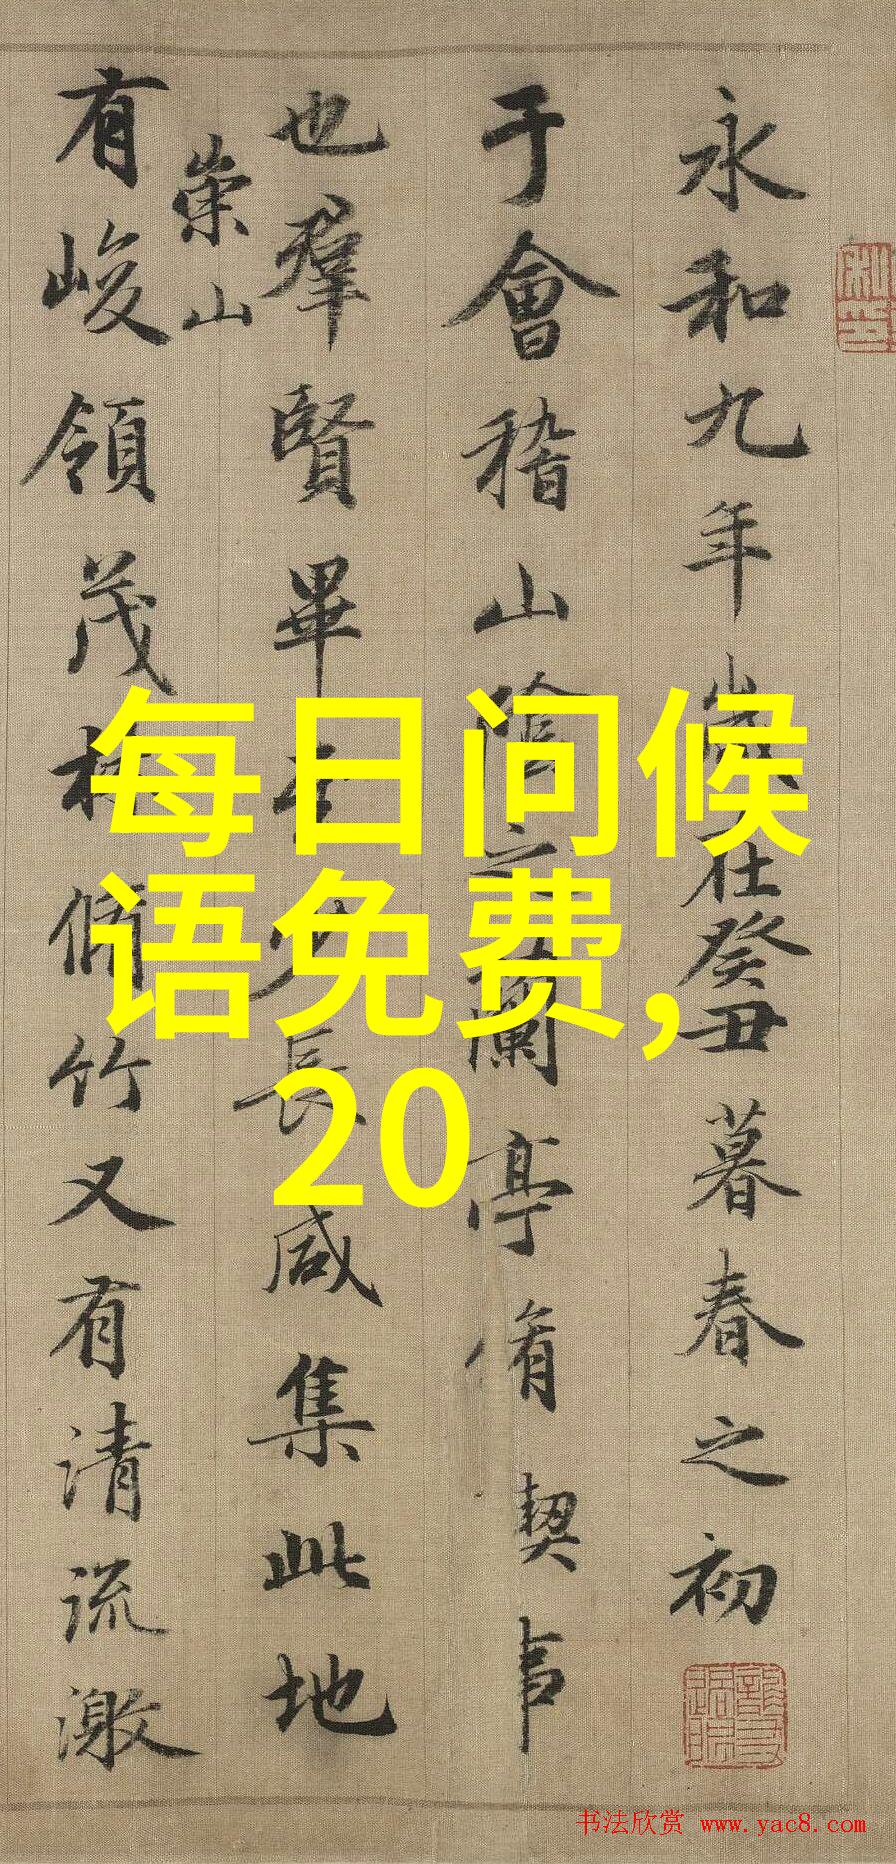 永和九年歲在癸丑暮春之初
于會稽山陰之蘭亭脩禊事
也羣賢畢至少長咸集此地
崇山
有峻領茂林脩竹又有清流激
每日问候
语免费,
20
书法欣赏 www.yac8.com